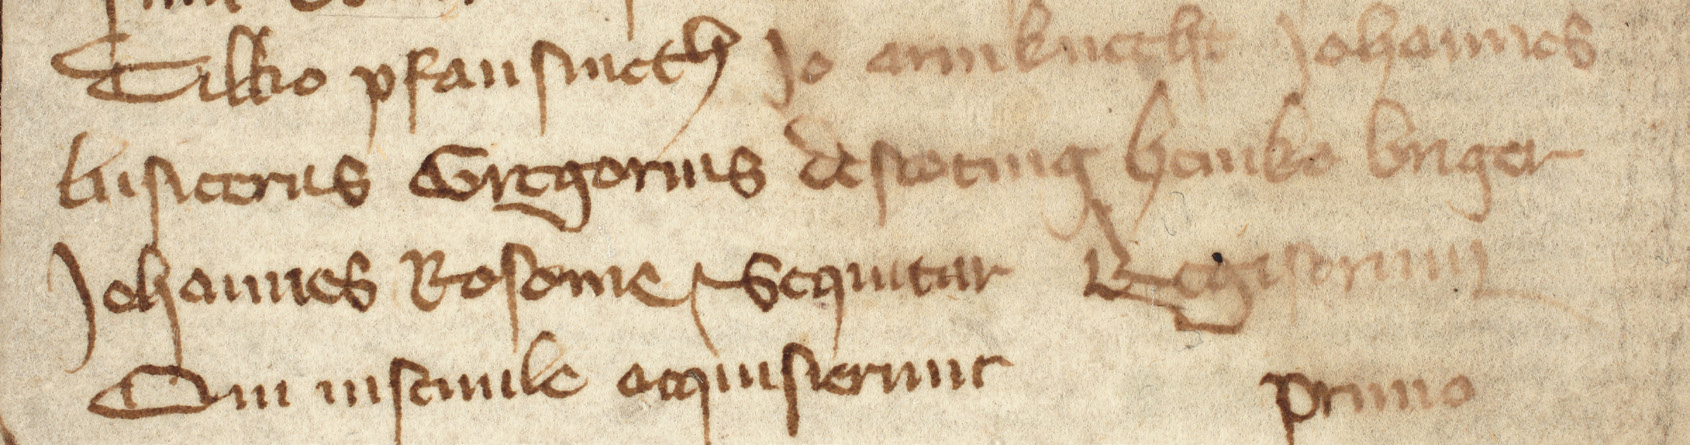 Tilko pfansmeth Jo armknecht Johannes
busiccrus Gregorius de scotnig henko briger
Johannes Rosome Sequitur Registrum
Qui insimile acquisierunt primo